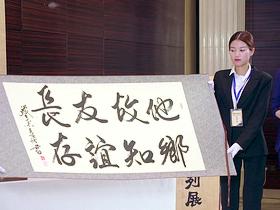 他鄉
故知
友誼
長存
列展